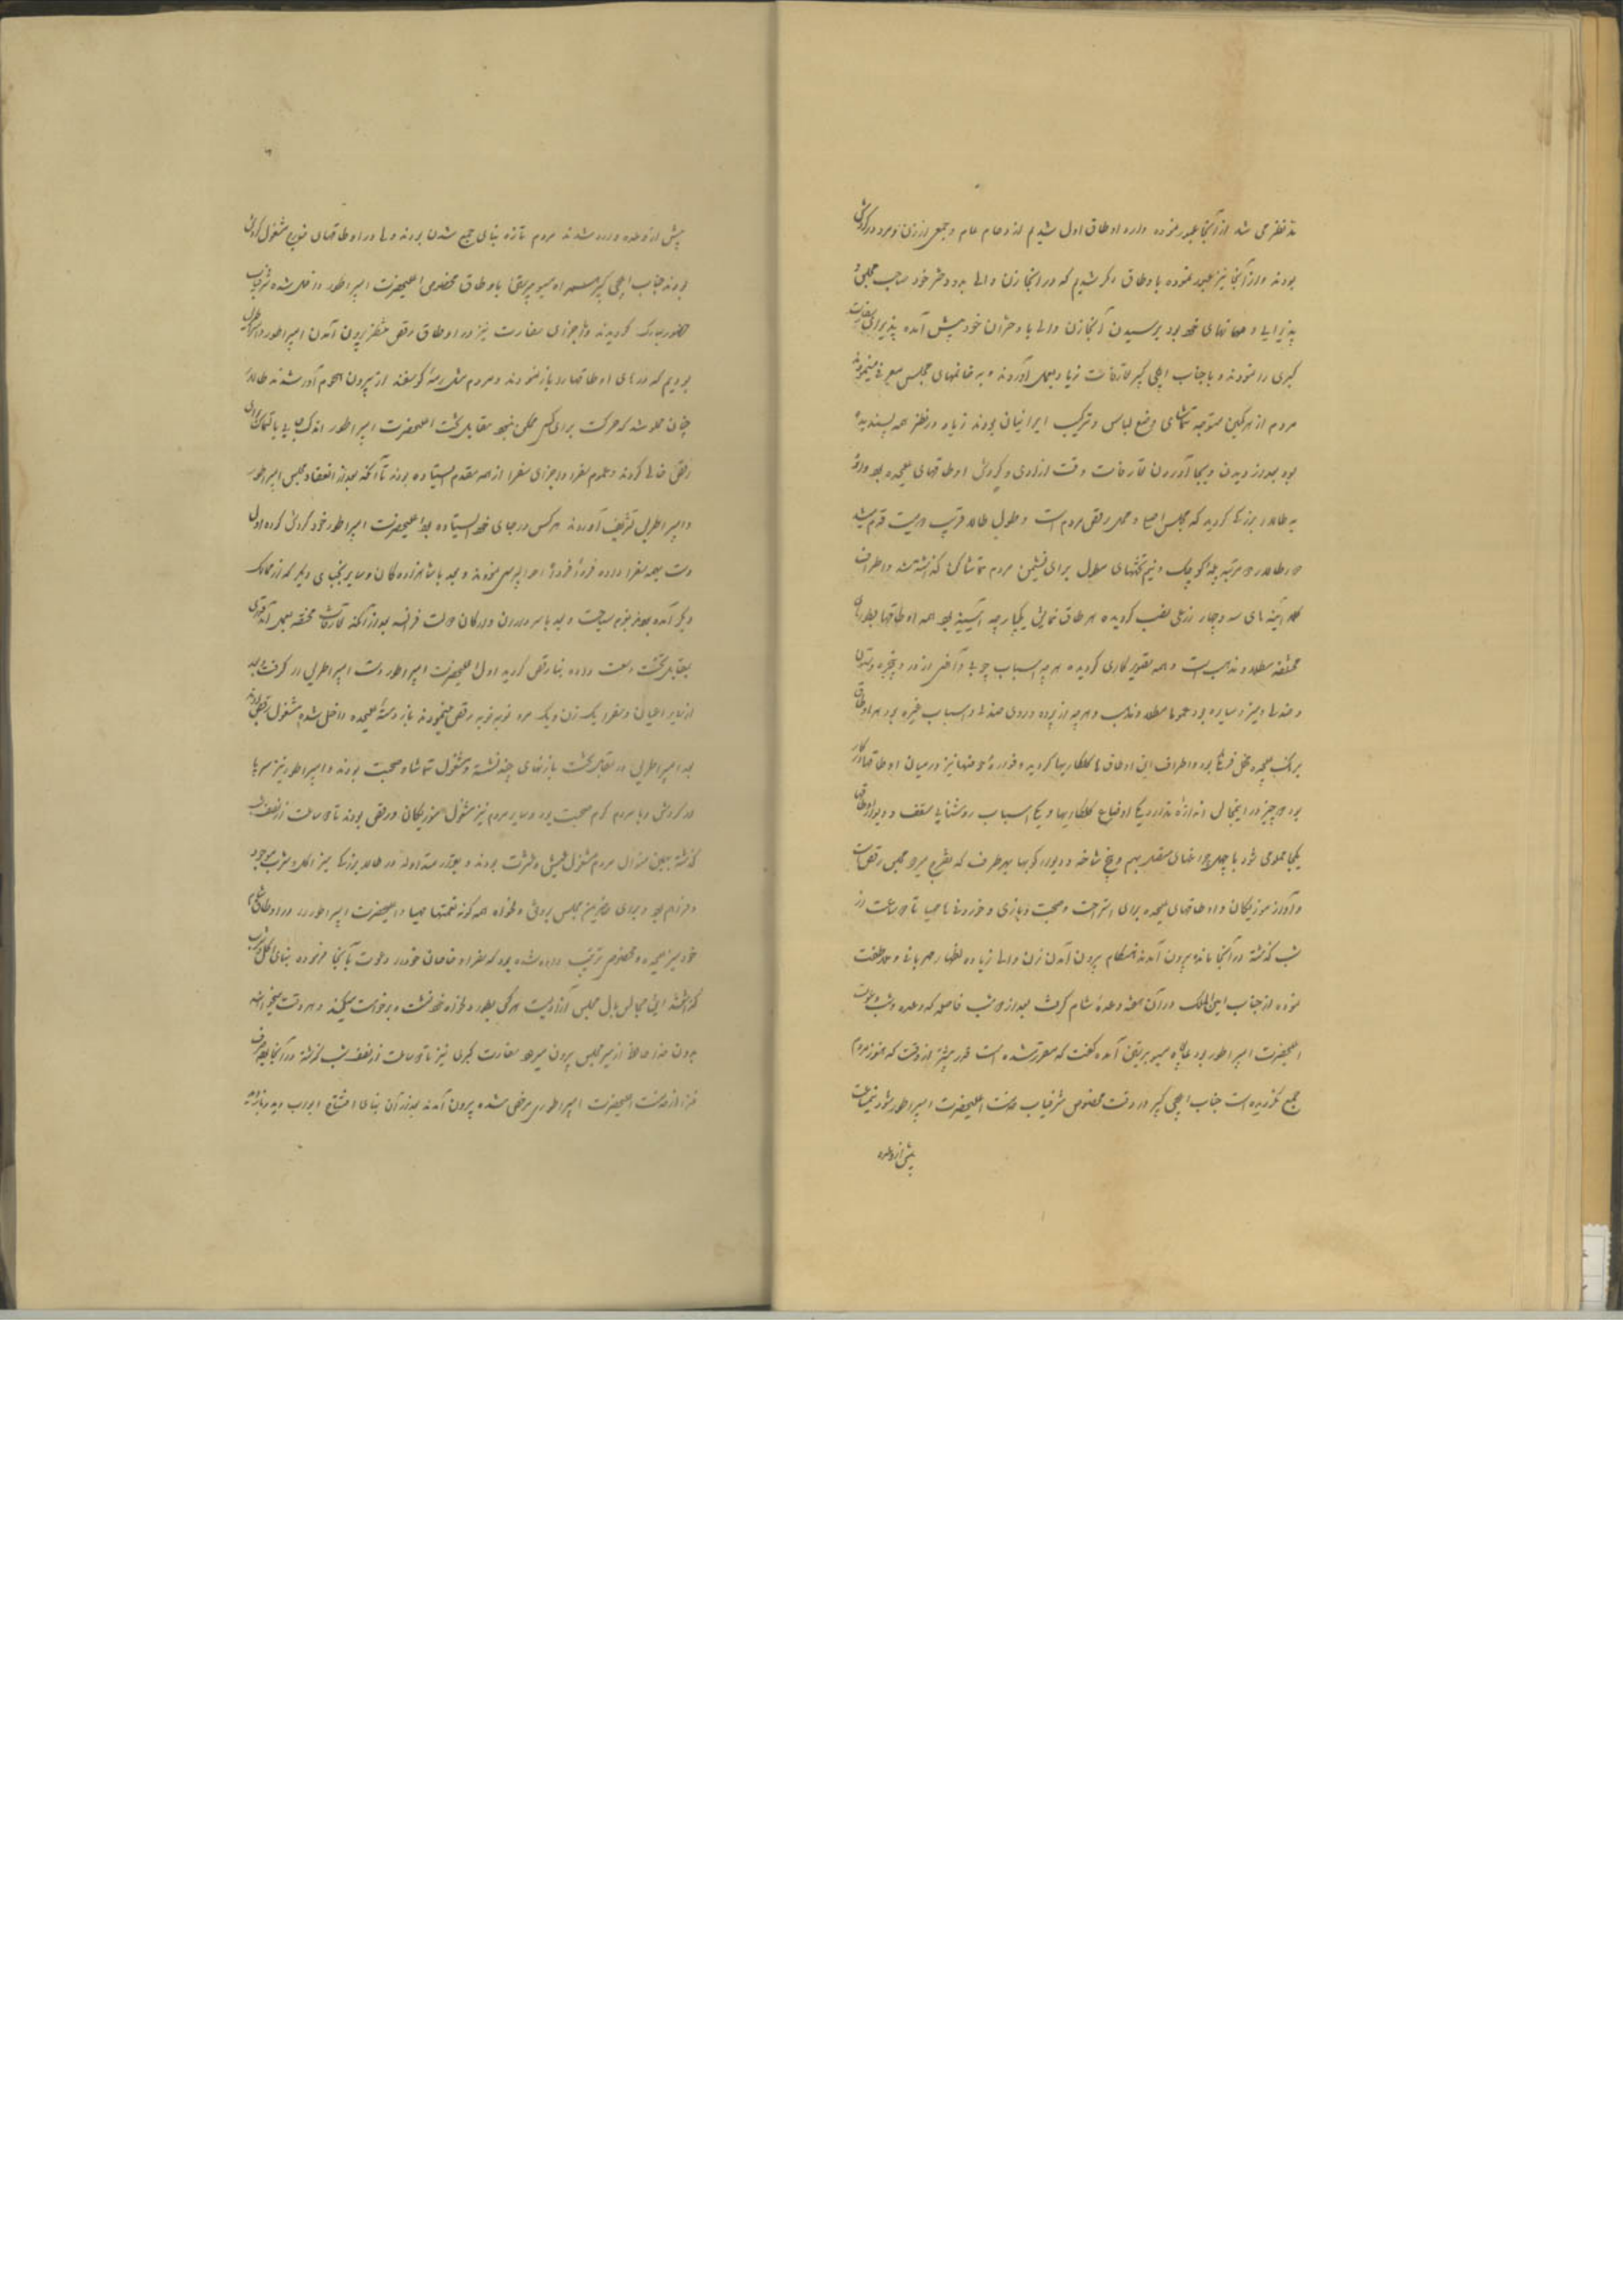 مد نظر می شد از آنجا عبور نموده وارد اوطاق اول شدیم ازدحام عام و جمعی از زن و مرد در گردش
بودند و از آنجا نیز عبور نموده باوطاق دیگر شدیم که در اینجا زن والی بود و دختر خود صاحب مجلس و
پذیرایی و مهمانهای خود بود برسیدن آنجا زن والی با دختران خود پیش آمده پذیرای سفارت
کبری را نمودند و با جناب ایلچی کبیر تعارفات زیاد بعمل آوردند و به خانمهای مجلس معرفی مینمودند
مردم از هرگین متوجه تماشای وضع لباس و ترکیب ایرانیان بودند زیاد در نظر همه پسندیده
بود بعد از دیدن و بجا آوردن تعارفات وقت آزادی و گردش اوطاقهای علیحده بود وارد
به طالار بزرگ گردید که مجلس احیا و محل رقص مردم است و طول طالار قریب دویست قدم میشد
در طالار دو مرتبه پله کوچک و نیم تختهای مطول برای نشیمن مردم تماشا کن گذاشته شده و اطراف
کلا آینه های سه و چهار ذرعی نصب گردیده هر طاق نمایش یکپارچه آیینه بود همه اوطاقها بطورهای
مختلفه مطلا و مذهب است و همه بقلم کاری گردیده هر چه اسباب چوبی و آهنی از در و پنجره و
صندلی و میز و سایره بود عموما مطلا و مذهب و هر چه از پرده و روی صندلی و اسباب غیره بود هر اوطاق
برنگ علیحده مخمل فرنگی بود و اطراف این اوطاق ها گلکاریها گردیده و فواره حوضها نیز در میان اوطاقها در کار
بود دو چیز در اینجا اندازه ندارد یکی اوضاع گلکاریها و یکی اسباب روشنایی سقف و دیوار اوطاقها
یکجا مملو می شود با چهلچراغهای متصل بهم و پنج شاخه و دیوارکوبها بهر طرف که بتفرج میرود مجلس رقص است
و آواز موزیکان و اوطاقهای علیحده برای استراحت و صحبت و بازی و خوردنی ها مهیا تا دو ساعت از
شب گذشته در آنجا مانده بیرون آمدند هنگام بیرون آمدن زن والی زیاده اظهار مهربانی و ملاطفت
نموده از جناب امین الملک در آن هفته وعده شام گرفت بعد از دو شب فاصله که وعده شب دعوت
اعلیحضرت امپراطور بود پگاه مسیو بریتن آمده گفت که مقرر شده است قدر پیشتر از وقت که هنوز مردم
جمع نگردیده است جناب ایلچی کبیر در وقت مخصوص شرفیاب خدمت اعلیحضرت امپراطور شود نیمساعت
پیش از وعده
پیش از وعده وارد شدند مردم تازه بنای جمع شدن بودند ولی در اوطاقهای خود مشغول گردش
بودند جناب ایلچی کبیر همراه مسیو بریتن باوطاق مخصوص اعلیحضرت امپراطور داخل شده شرفیاب
حضور مبارک گردیدند و اجزای سفارت نیز در اوطاق رقص منتظر بیرون آمدن امپراطور و امپراطریس
بودیم که درهای اوطاقها را باز نمودند و مردم مثل رمه گوسفند از بیرون هجوم آور شدند طالار
چنان مملو شد که حرکت برای کسی ممکن نبود مقابل تخت اعلیحضرت امپراطور اندک جایی برای
رقص خالی کردند و عموم سفرا و اجزای سفرا از همه مقدم ایستاده بودند تا آنکه بعد از انعقاد مجلس امپراطور
و امپراطریس تشریف آوردند هر کس در جای خود ایستاده بود اعلیحضرت امپراطور خود گردش کرده اول
دست بهمه سفرا داده فردا فردا احوالپرسی نمودند و بعد با شاهزادگان و سایر نجبای دیگر که از ممالک
دیگر آمده بودند بعزم سیاحت و بعد با سرداران و ارکان دولت فرانسه بعد از آنکه تعارفات مختلفه بعمل آمد قدری
مقابل تخت وسعت داده بنا رقص گردید اول اعلیحضرت امپراطور دست امپراطریس را گرفت بعد
از سایر اعیان و سفرا یک زن و یک مرد نوبه نوبه رقص مینمودند باز دسته علیحده داخل شده مشغول رقص بودند
بعد امپراطریس در مقابل تخت با زنهای چند نشسته و مشغول تماشا و صحبت بودند و امپراطور نیز سرپا
در گردش و با مردم گرم صحبت بود و سایر مردم نیز مشغول موزیکان و رقص بودند تا دو ساعت از نصف شب
گذشته بهمین منوال مردم مشغول عیش و عشرت بودند و بقدر در طالار بزرگ میز اکل و شرب موجود
و فراهم بود و برای حاضرین مجلس بروش دلخواه همه گونه نعمتها مهیا و اعلیحضرت امپراطور در اوطاق
خود میز علیحده و مخصوص ترتیب داده شده بود که سفرا و خاصان خود را دعوت بآنجا فرموده بنای اکل و شرب
گذاشتند این مجالس بال مجلس آزادیست هر کس بطور دلخواه خود نشست و برخواست میکند و هر وقت میخواهد
بدون خداحافظ از میر مجلس بیرون میرود سفارت کبری نیز تا دو ساعت از نصف شب گذشته در آنجا بوده
از خدمت اعلیحضرت امپراطور مرخص شده بیرون آمدند بعد از آن بنای افتتاح ابواب دید و بازدید